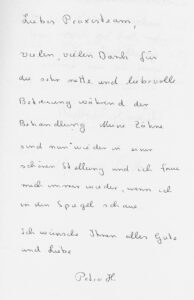 Liebes Praxisteam,
vielen, vielen Dank für
die sehr nette und liebevolle
Betreuung während der
Behandlung. Meine Zähne
sind nun wieder in einer
schönen Stellung und ich freue
mich immer wieder, wenn ich
in den Spiegel schaue.
Ich wünsche Ihnen alles Gute
und Liebe
Petra H.